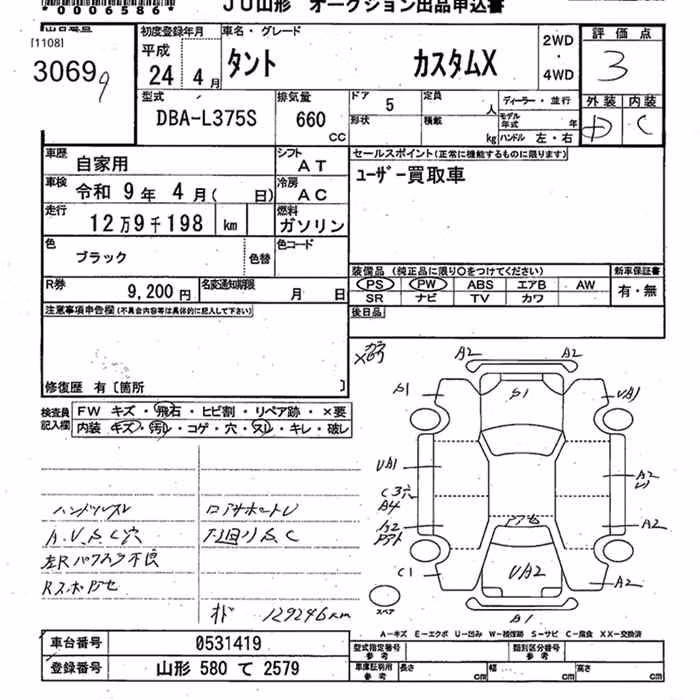 *0006586*
JU山形 オークション出品申込書
[1108]
3069
9
初度登録年月
平成
24年4月
車名・グレード
タント カスタムX
2WD
・
4WD
評価点
3
外装 内装
D C
型式
DBA-L375S
排気量
660
CC
ドア
5
定員
人
形状
積載
kg
ディーラー・並行
モデル年式 年
ハンドル 左・右
車歴
自家用
シフト
AT
車検
令和 9年 4月( 日)
冷房
AC
走行
12万9千198 km
燃料
ガソリン
色
ブラック
色替
色コード
R券
9,200円
名変通知期限
月 日
セールスポイント(正常に機能するものに限ります)
ユーザー買取車
装備品 (純正品に限り○をつけてください)
PS PW ABS エアB AW
SR ナビ TV カワ
新車保証書
有・無
後日品
注意事項申告欄(不具合内容等は具体的に記入して下さい)
修復歴 有〔箇所 〕
検査員
記入欄
FW キズ・飛石・ヒビ割・リペア跡・×要
内装 キズ・汚レ・コゲ・穴・スレ・キレ・破レ
ハンドルスレ
A.U.S.C穴
左Rパワスラ不良
ロアサポートU
下回りS.C
129246km
A2 A2
S1 S1 UA1
UA1
C3穴
A4
A2
A2
U1
A2
C1 UA2 A2
A1
スペア
A-キズ E-エクボ U-凹み W-補修跡 S-サビ C-腐食 XX-交換済
車台番号 0531419
登録番号 山形 580 て 2579
型式指定番号
参考
類別区分番号
参考
車庫証明用
参考
長さ cm 幅 cm 高さ cm